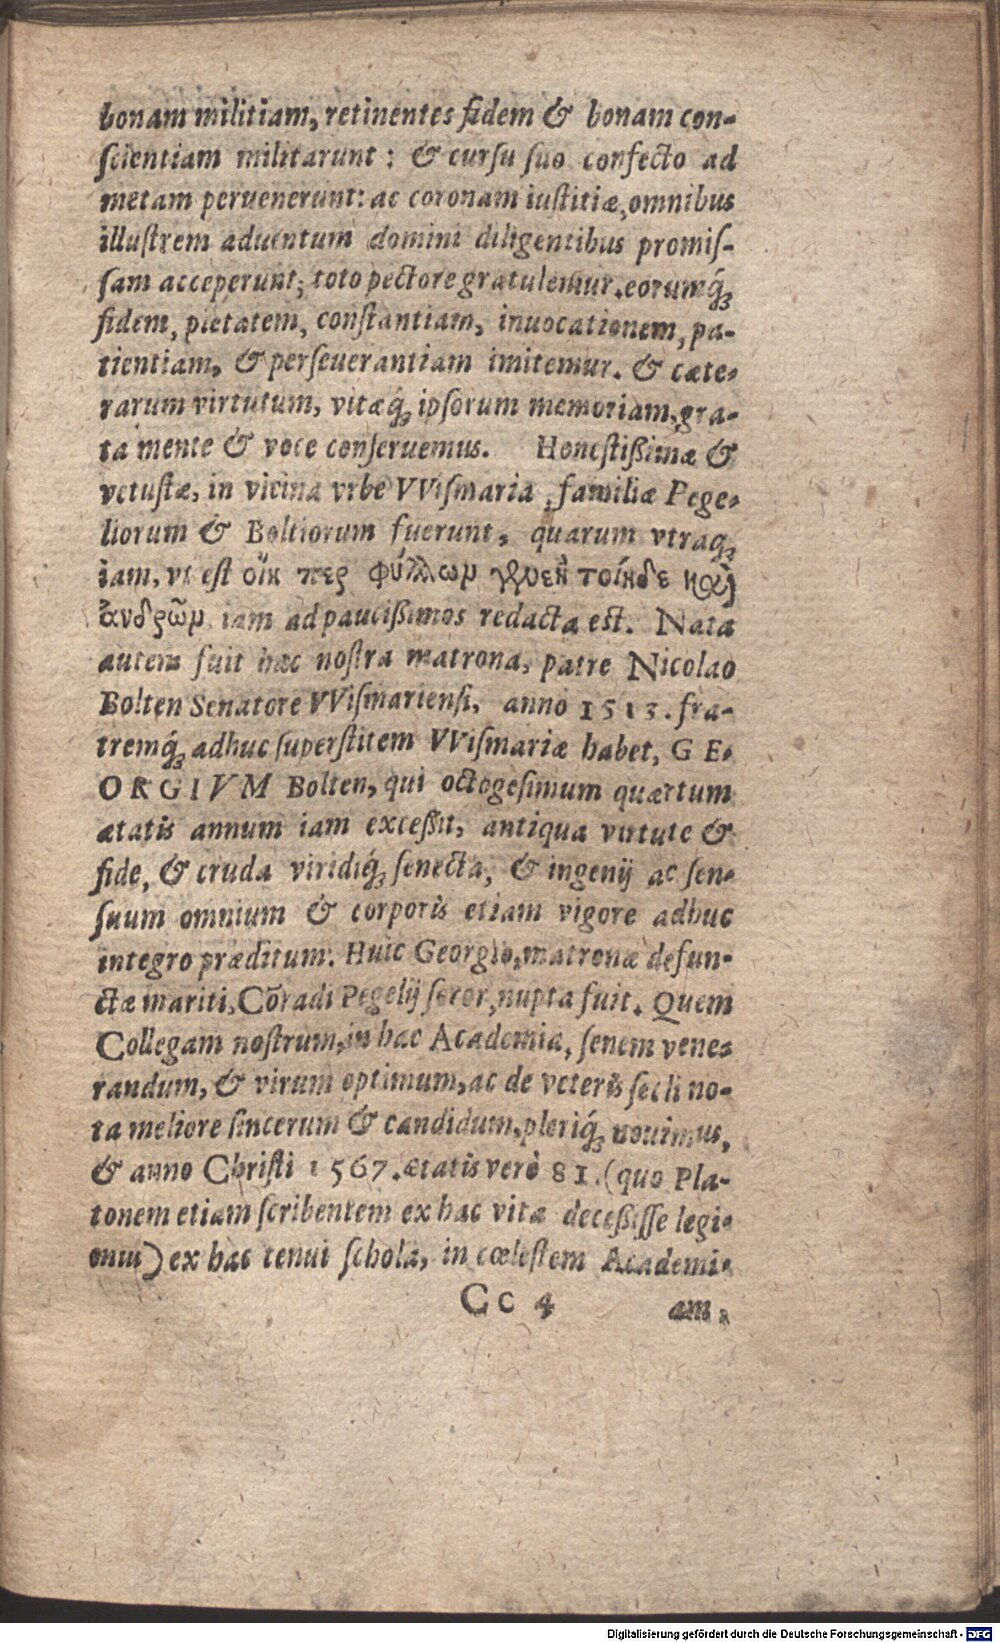 bonam militiam, retinentes fidem & bonam con-
scientiam militarunt: & cursu suo confecto ad
metam peruenerunt: ac coronam iustitiæ, omnibus
illustrem aduentum domini diligentibus promis-
sam acceperunt; toto pectore gratulemur. eorumq́;
fidem, pietatem, constantiam, inuocationem, pa-
tientiam, & perseuerantiam imitemur. & cæte-
rarum virtutum, vitæq́; ipsorum memoriam, gra-
ta mente & voce conseruemus. Honestißimæ &
vetustæ, in vicina vrbe VVismaria, familiæ Pege-
liorum & Boltiorum fuerunt, quarum vtraq;
iam, vt est οἵη περ φύλλων γενεὴ τοίηδε καὶ
ἀνδρῶν, iam ad paucißimos redacta est. Nata
autem fuit hæc nostra matrona, patre Nicolao
Bolten Senatore VVismariensi, anno 1513. fra-
tremq́; adhuc superstitem VVismariæ habet, GE-
ORGIVM Bolten, qui octogesimum quartum
ætatis annum iam exceßit, antiqua virtute &
fide, & cruda viridiq́; senecta, & ingenij ac sen-
suum omnium & corporis etiam vigore adhuc
integro præditum. Huic Georgio, matronæ defun-
ctæ mariti, Cõradi Pegelij soror, nupta fuit. Quem
Collegam nostrum, in hac Academia, senem vene-
randum, & virum optimum, ac de veteris secli no-
ta meliore sincerum & candidum, pleriq́; nouimus,
& anno Christi 1567. ætatis verò 81. (quo Pla-
tonem etiam scribentem ex hac vita deceßisse legi-
mus) ex hac tenui schola, in cœlestem Academi-
Cc 4 am,
Digitalisierung gefördert durch die Deutsche Forschungsgemeinschaft - DFG